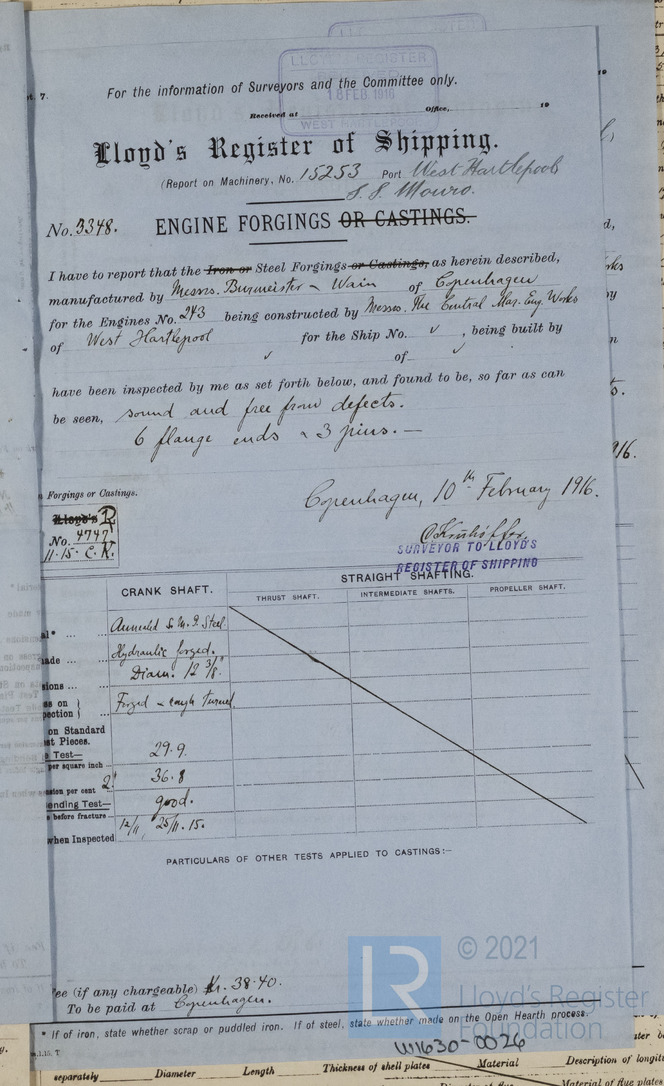 LLOYD'S REGISTER
18 FEB 1916
WEST HARTLEPOOL
For the information of Surveyors and the Committee only.
Received at Office, 19
Lloyd's Register of Shipping.
(Report on Machinery, No. 15253 Port West Hartlepool
S.S. Mouro.
No. 3348. ENGINE FORGINGS OR CASTINGS.
I have to report that the Iron or Steel Forgings or Castings, as herein described,
manufactured by Messrs. Burmeister & Wain of Copenhagen
for the Engines No. 243 being constructed by Messrs. The Central Mar. Eng. Works
of West Hartlepool for the Ship No. ✓, being built by
✓ of ✓
have been inspected by me as set forth below, and found to be, so far as can
be seen, sound and free from defects.
6 flange ends & 3 pins. —
Forgings or Castings.
Copenhagen, 10th February 1916.
Lloyd's R
No. 4747
11.15. C.K.
SURVEYOR TO LLOYD'S
REGISTER OF SHIPPING
STRAIGHT SHAFTING.
CRANK SHAFT.
THRUST SHAFT. INTERMEDIATE SHAFTS. PROPELLER SHAFT.
Annealed S. M. I. Steel.
Hydraulic forged.
Diam. 12 3/8"
Forged & rough turned.
on Standard
Pieces.
Test—
per square inch ... 29.9.
per cent 2" 36.8
ending Test—
before fracture ... good.
when Inspected 12/11, 25/11.15.
PARTICULARS OF OTHER TESTS APPLIED TO CASTINGS:—
ee (if any chargeable) Kr. 38.40.
To be paid at Copenhagen.
© 2021
Lloyd's Register
Foundation
* If of iron, state whether scrap or puddled iron. If of steel, state whether made on the Open Hearth process.
W1630-0026
separately Diameter Length Thickness of shell plates Material Description of longitu
Material of flue plates